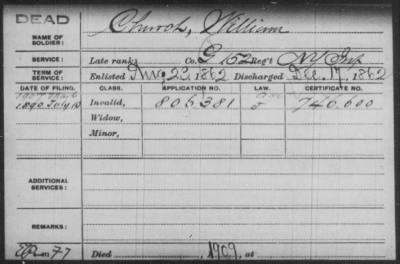 DEAD
NAME OF SOLDIER: Church, William
SERVICE: Late rank, Co. G 152 Reg't NY Inf
TERM OF SERVICE: Enlisted Aug 22, 1862 Discharged Dec. 17, 1862
DATE OF FILING. CLASS. APPLICATION NO. LAW. CERTIFICATE NO.
1890 July 12 Invalid, 806381 740.600
Widow,
Minor,
ADDITIONAL SERVICES:
REMARKS:
Died , 1909, at